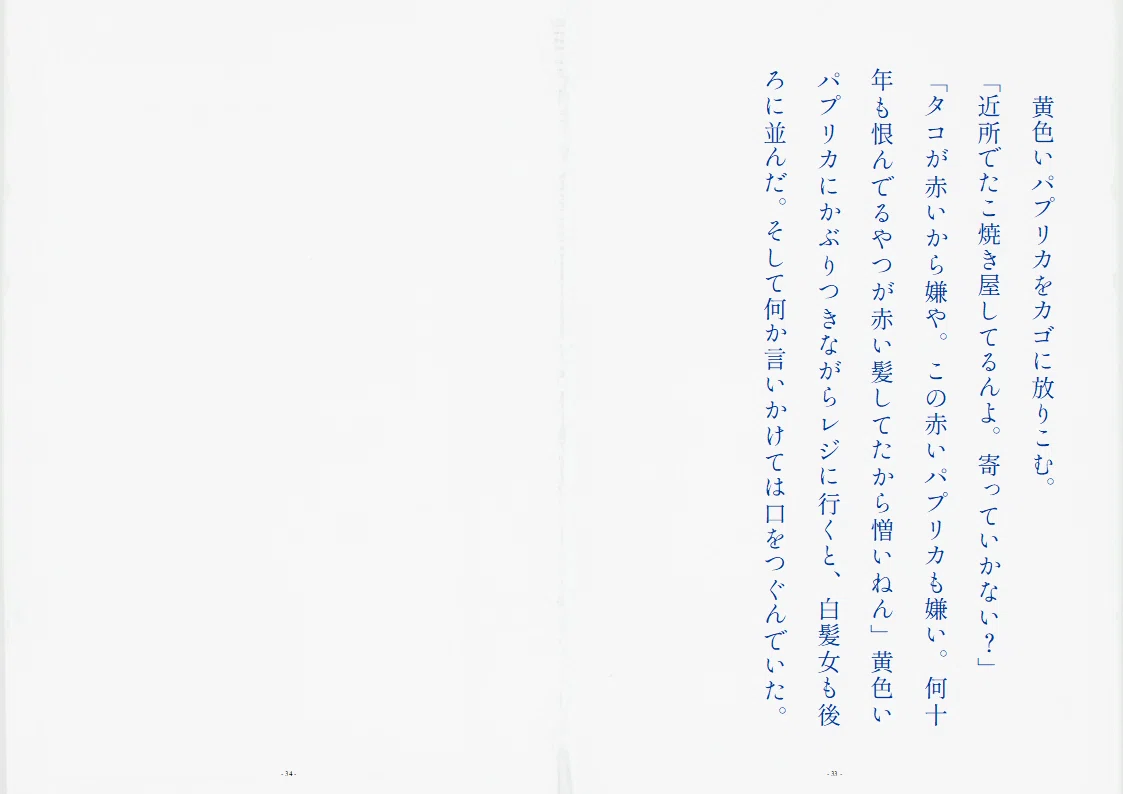 黄色いパプリカをカゴに放りこむ。
「近所でたこ焼き屋してるんよ。寄っていかない？」
「タコが赤いから嫌や。この赤いパプリカも嫌い。何十
年も恨んでるやつが赤い髪してたから憎いねん」黄色い
パプリカにかぶりつきながらレジに行くと、白髪女も後
ろに並んだ。そして何か言いかけては口をつぐんでいた。
- 33 -
- 34 -